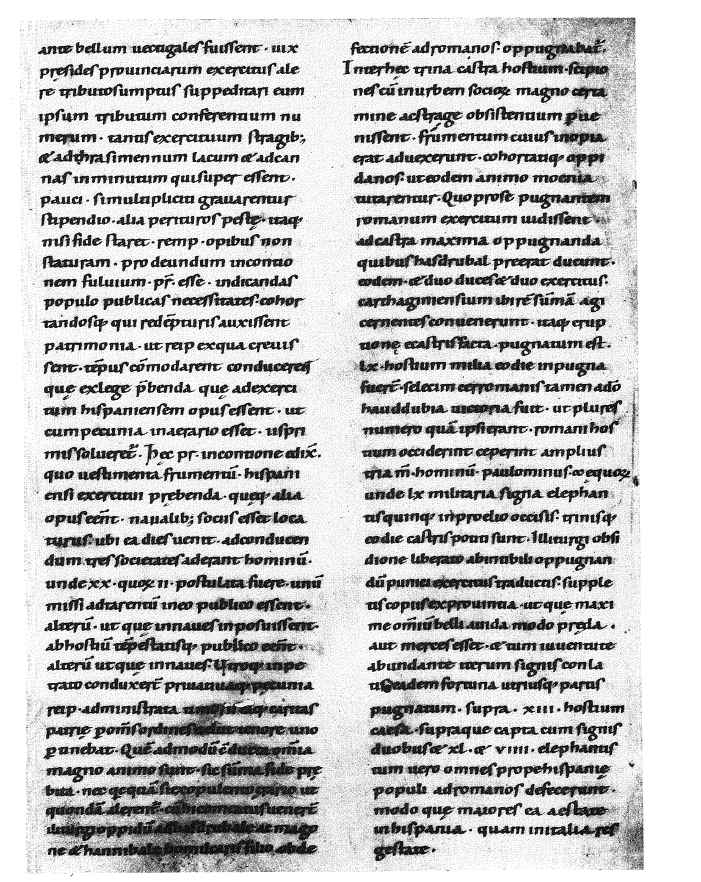 ante bellum uectigales fuissent · uix
presides prouinciarum exercitus ale
re tributo sumptus suppeditari eum
ipsum tributum conferentium nu
merum · tantis exercituum stragib;
& ad thrasimennum lacum & ad can
nas inminutum qui super essent ·
pauci · si multiplici grauarentur
stipendio · alia perituros peste · itaq·
nisi fide staret · remp · opibus non
staturam · prodeundum incontio
nem fuluium · pr̄ · esse · indicandas
populo publicas necessitates · cohor
tandosq· qui redēpturis auxissent
patrimonia · ut reip ex qua creuis
sent · tēpus cōmodarent conducerēt
que ex lege p̄benda que ad exerci
tum hispaniensem opus essent · ut
cum pecunia in aerario esset · iis pri
mis solueret̄ · Hec pr · incontione edix̄ ·
quo uestimenta frumentū · hispani
ensi exercitui prebenda · queq· alia
opus eēnt · naualib; sociis esset loca
turus · ubi ea dies uenit · ad conducen
dum tres societates aderant hominū ·
unde xx · quoꝝ ii · postulata fuere · unū
missi ad tarentū in eo publico essent ·
alterū · ut que in naues inposuissent ·
ab hostiū tēpestatisq· publico eēnt ·
alterū ut que in naues · Utroq· inpe
trato conduxerē priuataq· pecunia
reip · administrata
patrie p oms ordines uelut tenore uno
ptinebat · Quē admodū cōducta omīa
magno animo sunt · sic sūma fide pre
bita · nec
quondā alerent̄ · cū hi comeatus uenerēt
iliturgi oppidū ab hasdrubale ac mago
ne & hannibale bomilcaris filio ob de
fectionē ad romanos · oppugnabat̄ ·
Inter hec trina castra hostium · scipio
nes cū in urbem socioꝝ magno certa
mine ac strage obsistentium pue
nissent · frūmentum cuius inopia
erat aduexerunt · cohortatiq· oppi
danos · ut eodem animo moenia
tutarentur · Quo pro se pugnantem
romanum exercitum uidissent ·
ad castra maxima oppugnanda
quibus hasdrubal preerat ducunt ·
eodem · & duo duces & duo exercitus ·
carthaginensium ibi rē sūmā agi
cernentes conuenerunt · itaq· erup
tione e castris facta · pugnatum est ·
lx · hostium milia eo die in pugna
fuerē · sedecim cerromanis tamen adō
haud dubia uictoria fuit · ut plures
numero quā ipsi erant · romani hos
tium occiderint ceperint amplius
tria m̄ · hominū · paulominus ∞ equoꝝ
unde lx militaria signa elephan
tis quinq· in proelio occisis · trinisq·
eo die castris potiti sunt · Iliturgi obsi
dione liberato ab intibili oppugnan
dū punici exercitus traducti · supple
tis copiis ex prouintia · ut que maxi
me omiū belli auida modo preda ·
aut merces esset · & tum iuuentute
abundante iterum signis conla
tis eadem fortuna utriusq· partis
pugnatum · supra · xiii · hostium
caesa · supraque capta cum signis
duobus & xl · & viiii · elephantis
tum uero omnes prope hispanie
populi ad romanos defecerunt ·
modo que maiores ea aestate
in hispania · quam in italia res
gestae ·